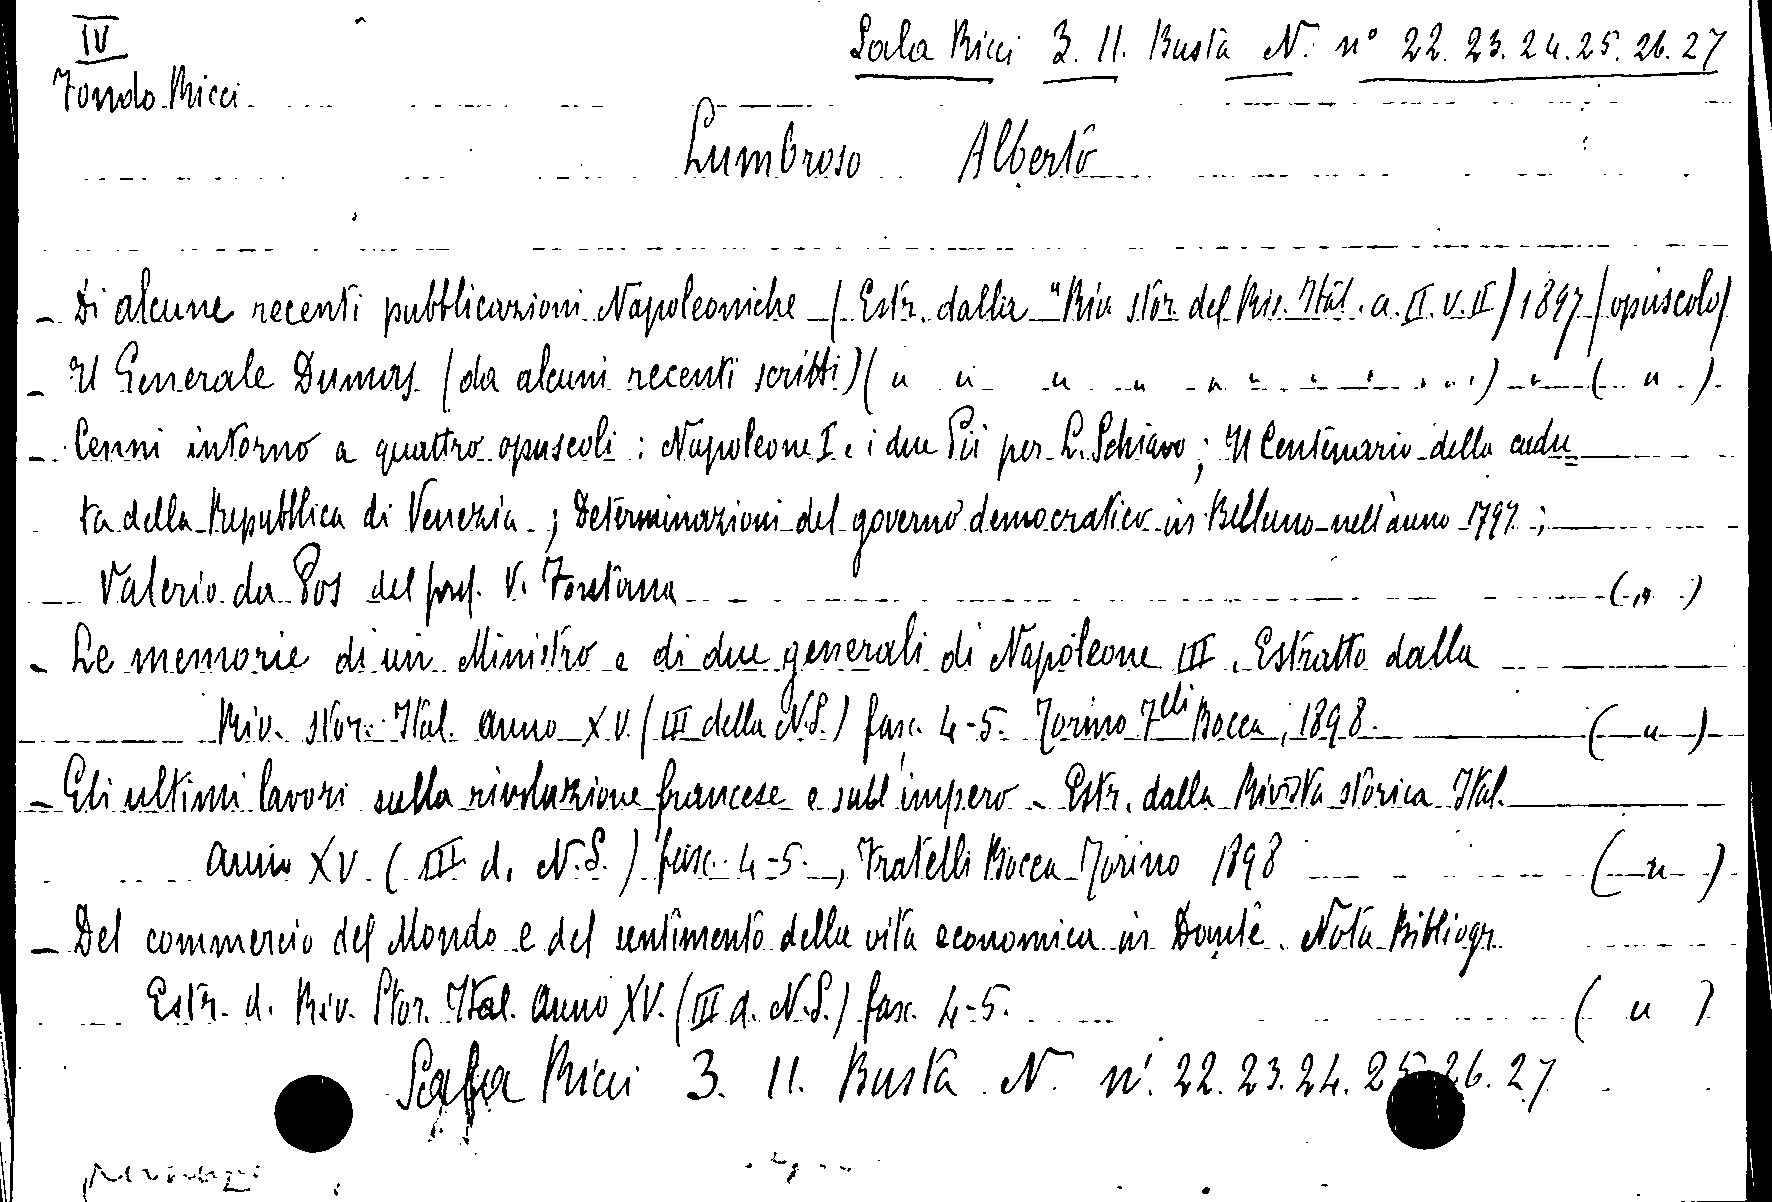 IV
Sala Ricci 3. 11. Busta N. n° 22. 23. 24. 25. 26. 27
Fondo Ricci
Lumbroso Alberto
- Di alcune recenti pubblicazioni Napoleoniche (Estr. dalla "Riv. stor. del Ris. Ital. a. II. v. II) 1897 (opuscolo)
- Il Generale Dumas (da alcuni recenti scritti) ( " " " " " " " " " " " " ) " ( " )
- Cenni intorno a quattro opuscoli : Napoleone I e i due Pii per L. Schiavo ; Il Centenario della cadu=
ta della Repubblica di Venezia ; Determinazioni del governo democratico in Belluno nell'anno 1797 ;
Valerio da Pos del prof. V. Fontana ( " )
- Le memorie di un Ministro e di due generali di Napoleone III. Estratto dalla
Riv. stor. Ital. anno XV. (III della N.S.) fasc. 4-5. Torino F.lli Bocca, 1898. ( " )
- Gli ultimi lavori sulla rivoluzione francese e sull'impero - Estr. dalla Rivista storica Ital.
Anno XV. (III d. N.S.) fasc. 4-5. , Fratelli Bocca Torino 1898 ( " )
- Del commercio del Mondo e del sentimento della vita economica in Dante. Nota Bibliogr.
Estr. d. Riv. Stor. Ital. Anno XV. (III d. N.S.) fasc. 4-5. ( " )
Sala Ricci 3. 11. Busta N. n° 22. 23. 24. 25. 26. 27